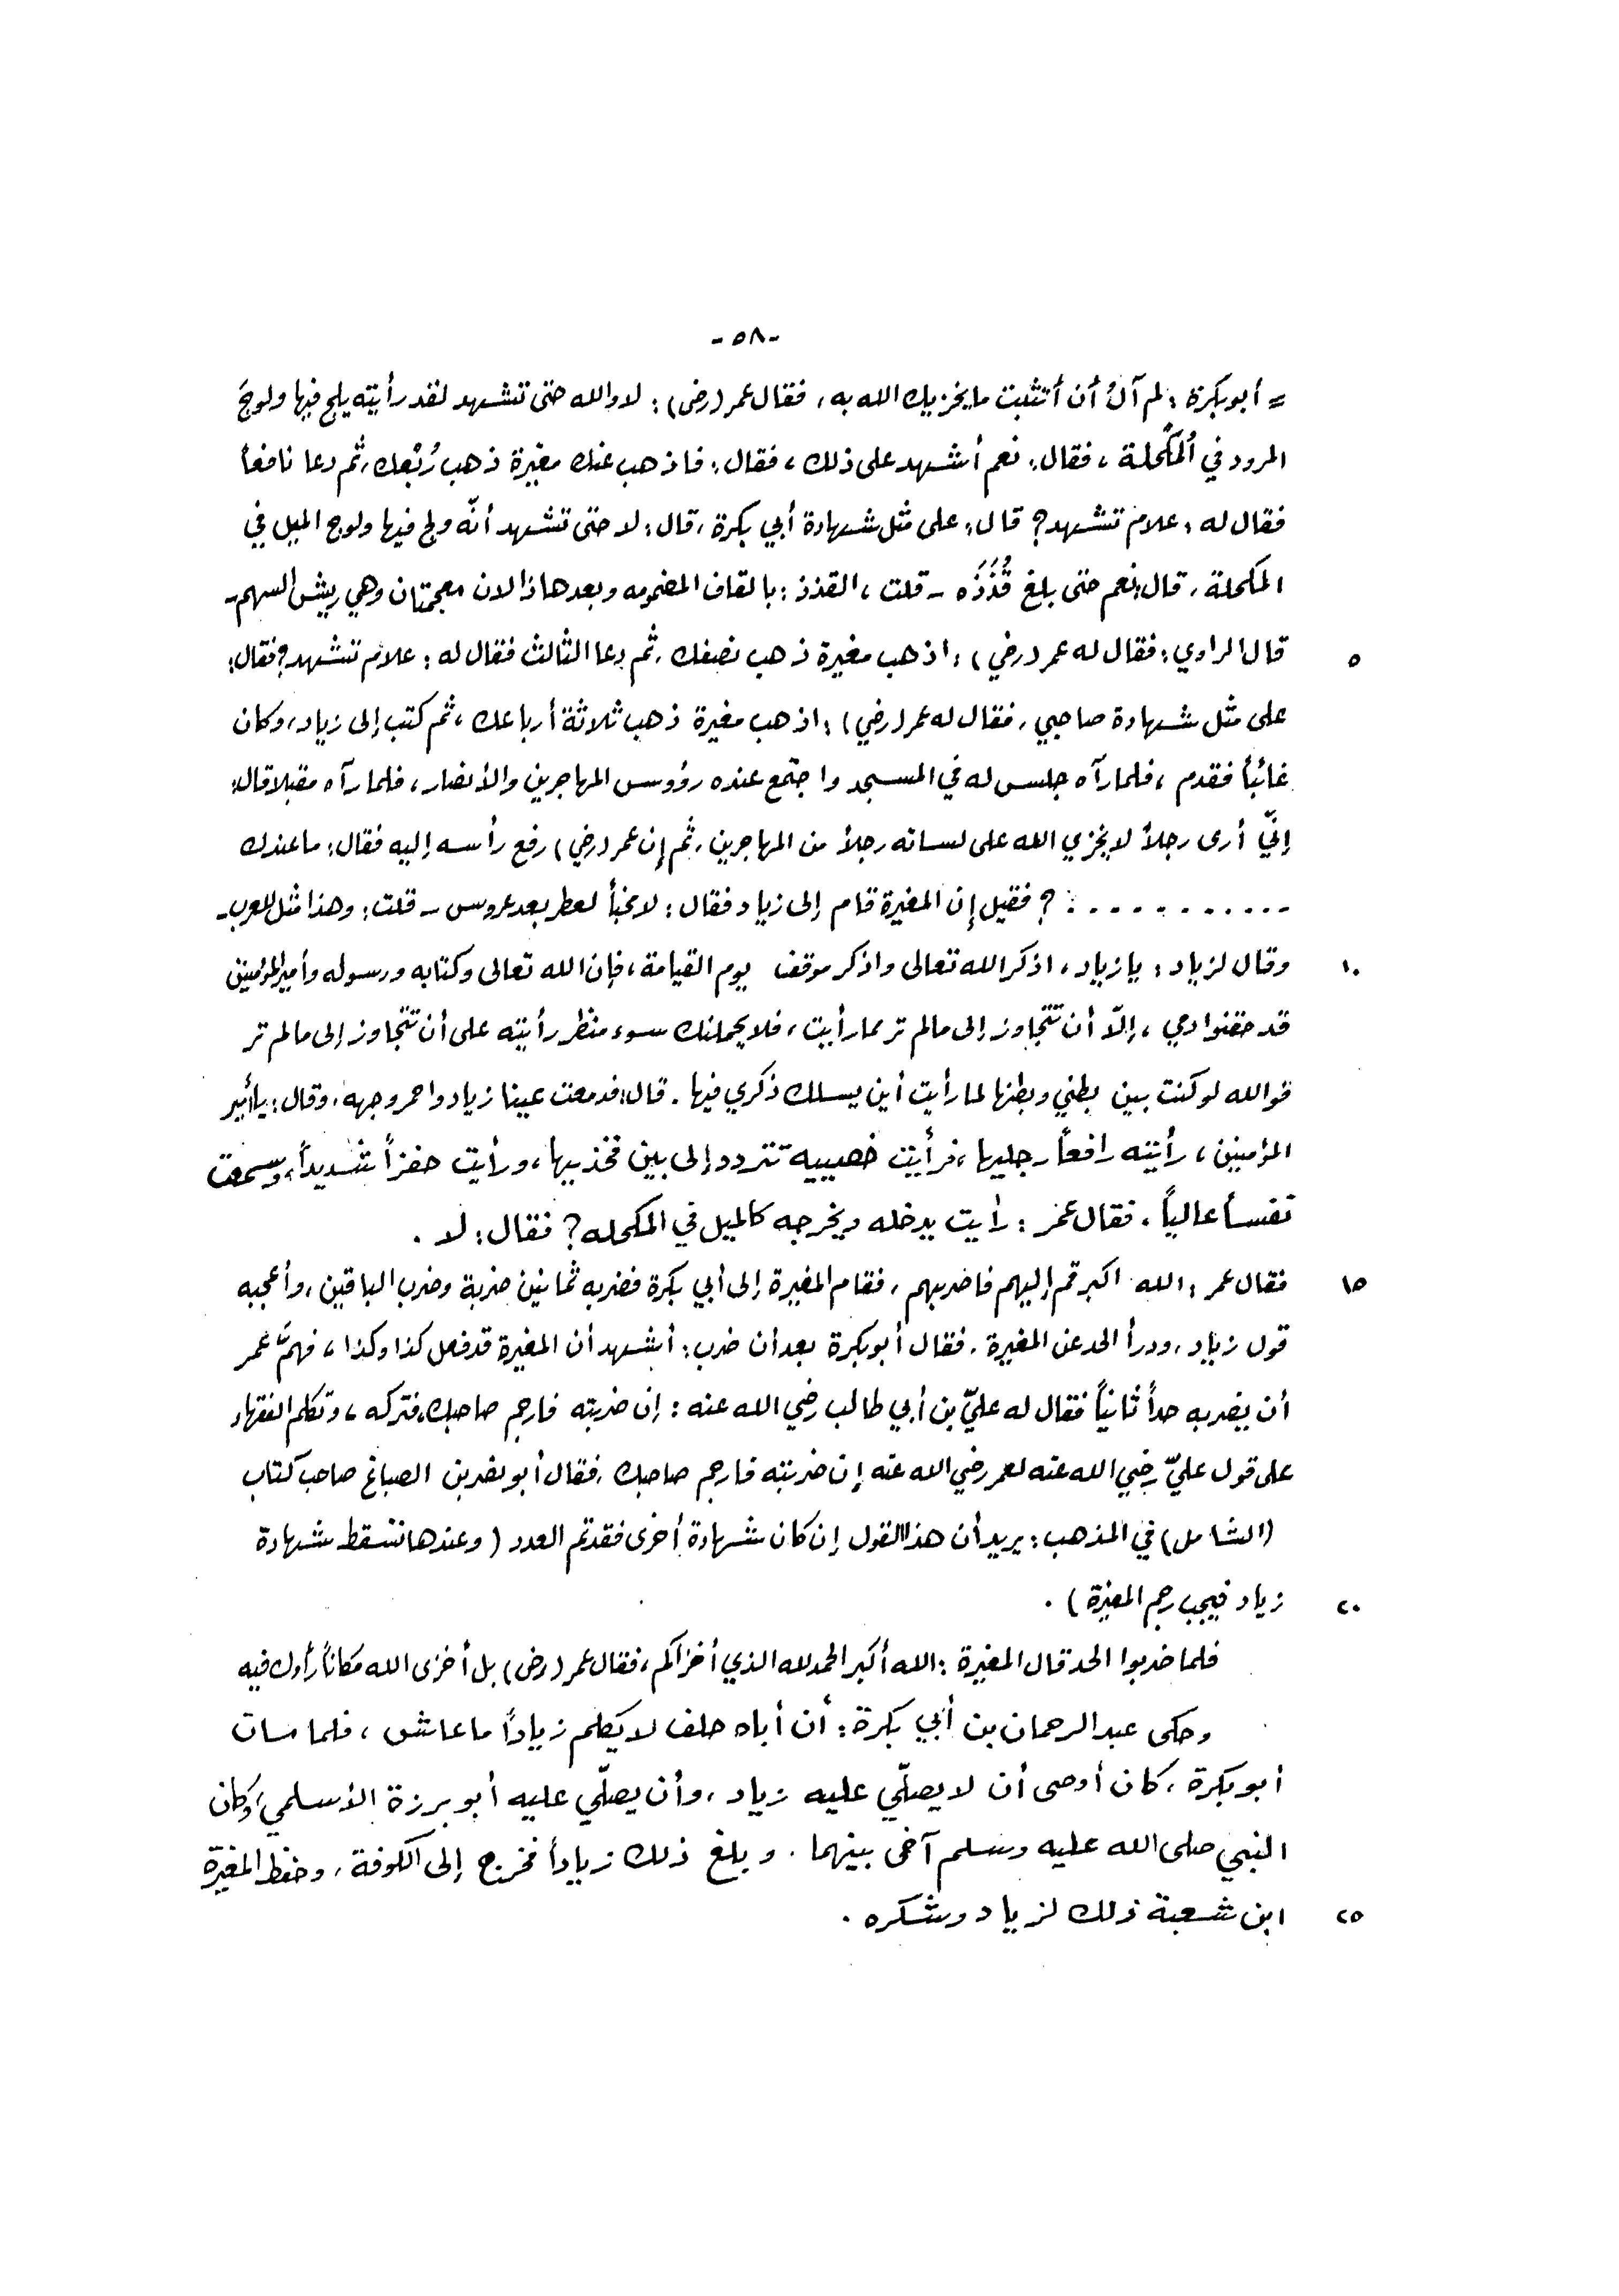 -٥٨-
= أبو بكرة : لم آلُ أن أتثبت ما يخزيك الله به ، فقال عمر (رضي) : لا والله حتى تشهد لقد رأيته يلج فيها ولوجَ
المرود في المُكحُلة ، فقال : نعم أشهد على ذلك ، فقال : فاذهب عنك مغيرة ذهب رُبْعك ، ثم دعا نافعاً
فقال له : علام تشهد ؟ قال : على مثل شهادة أبي بكرة ، قال : لا حتى تشهد أنّه ولج فيها ولوج الميل في
المكحلة ، قال : نعم حتى بلغ قُذُذَه - قلت ، القذذ : بالقاف المضمومه وبعدها ذالان معجمتان وهي ريش السهم -
٥ قال الراوي : فقال له عمر (رضي) : اذهب مغيرة ذهب نصفك ، ثم دعا الثالث فقال له : علام تشهد ؟ فقال :
على مثل شهادة صاحبي ، فقال له عمر (رضي) : اذهب مغيرة ذهب ثلاثة أرباعك ، ثم كتب إلى زياد ، وكان
غائباً فقدم ، فلما رآه جلس له في المسجد واجتمع عنده رؤوس المهاجرين والأنصار ، فلما رآه مقبلا قال :
إنّي أرى رجلاً لا يخزي الله على لسانه رجلاً من المهاجرين ، ثم إن عمر (رضي) رفع رأسه إليه فقال : ما عندك
. . . . . . . . . . . ؟ فقيل إن المغيرة قام إلى زياد فقال : لا مخبأ لعطر بعد عروس - قلت : وهذا مثل للعرب -
١٠ وقال لزياد : يا زياد ، اذكر الله تعالى واذكر موقف يوم القيامة ، فإن الله تعالى وكتابه ورسوله وأمير المؤمنين
قد حقنوا دمي ، إلّا أن تتجاوز إلى ما لم تر مما رأيت ، فلا يحملنك سوء منظر رأيته على أن تتجاوز إلى ما لم تر
فوالله لو كنت بين بطني وبطنها لما رأيت أين يسلك ذكري فيها . قال : فدمعت عينا زياد واحمر وجهه ، وقال : يا أمير
المؤمنين ، رأيته رافعاً رجليها ، فرأيت خصييه تتردد إلى بين فخذيها ، ورأيت حفزاً شديداً ، وسمعت
نفساً عالياً . فقال عمر : رأيت يدخله ويخرجه كالميل في المكحله ؟ فقال : لا .
١٥ فقال عمر : الله اكبر قم إليهم فاضربهم ، فقام المغيرة إلى أبي بكرة فضربه ثمانين ضربة وضرب الباقين ، وأعجبه
قول زياد ، ودرأ الحد عن المغيرة . فقال أبو بكرة بعد أن ضرب : أشهد أن المغيرة قد فعل كذا وكذا ، فهمَّ عمر
أن يضربه حداً ثانياً فقال له عليّ بن أبي طالب رضي الله عنه : إن ضربته فارجم صاحبك ، فتركه ، وتكلم الفقهاء
على قول عليّ رضي الله عنه لعمر رضي الله عنه إن ضربته فارجم صاحبك ، فقال أبو نصر بن الصباغ صاحب كتاب
(الشامل) في المذهب : يريد أن هذا القول إن كان شهادة أخرى فقد تم العدد ( وعندها تسقط شهادة
٢٠ زياد فيجب رجم المغيرة ) .
فلما ضربوا الحد قال المغيرة : الله أكبر الحمد لله الذي أخزاكم ، فقال عمر (رضي) بل أخزى الله مكاناً رأوك فيه
وحكى عبد الرحمان بن أبي بكرة : أن أباه حلف لا يكلم زياداً ما عاش ، فلما مات
أبو بكرة ، كان أوصى أن لا يصلّي عليه زياد ، وأن يصلّي عليه أبو برزة الأسلمي ، وكان
النبي صلى الله عليه وسلم آخى بينهما . وبلغ ذلك زياداً فخرج إلى الكوفة ، وحفظ المغيرة
٢٥ ابن شعبة ذلك لزياد وشكره .